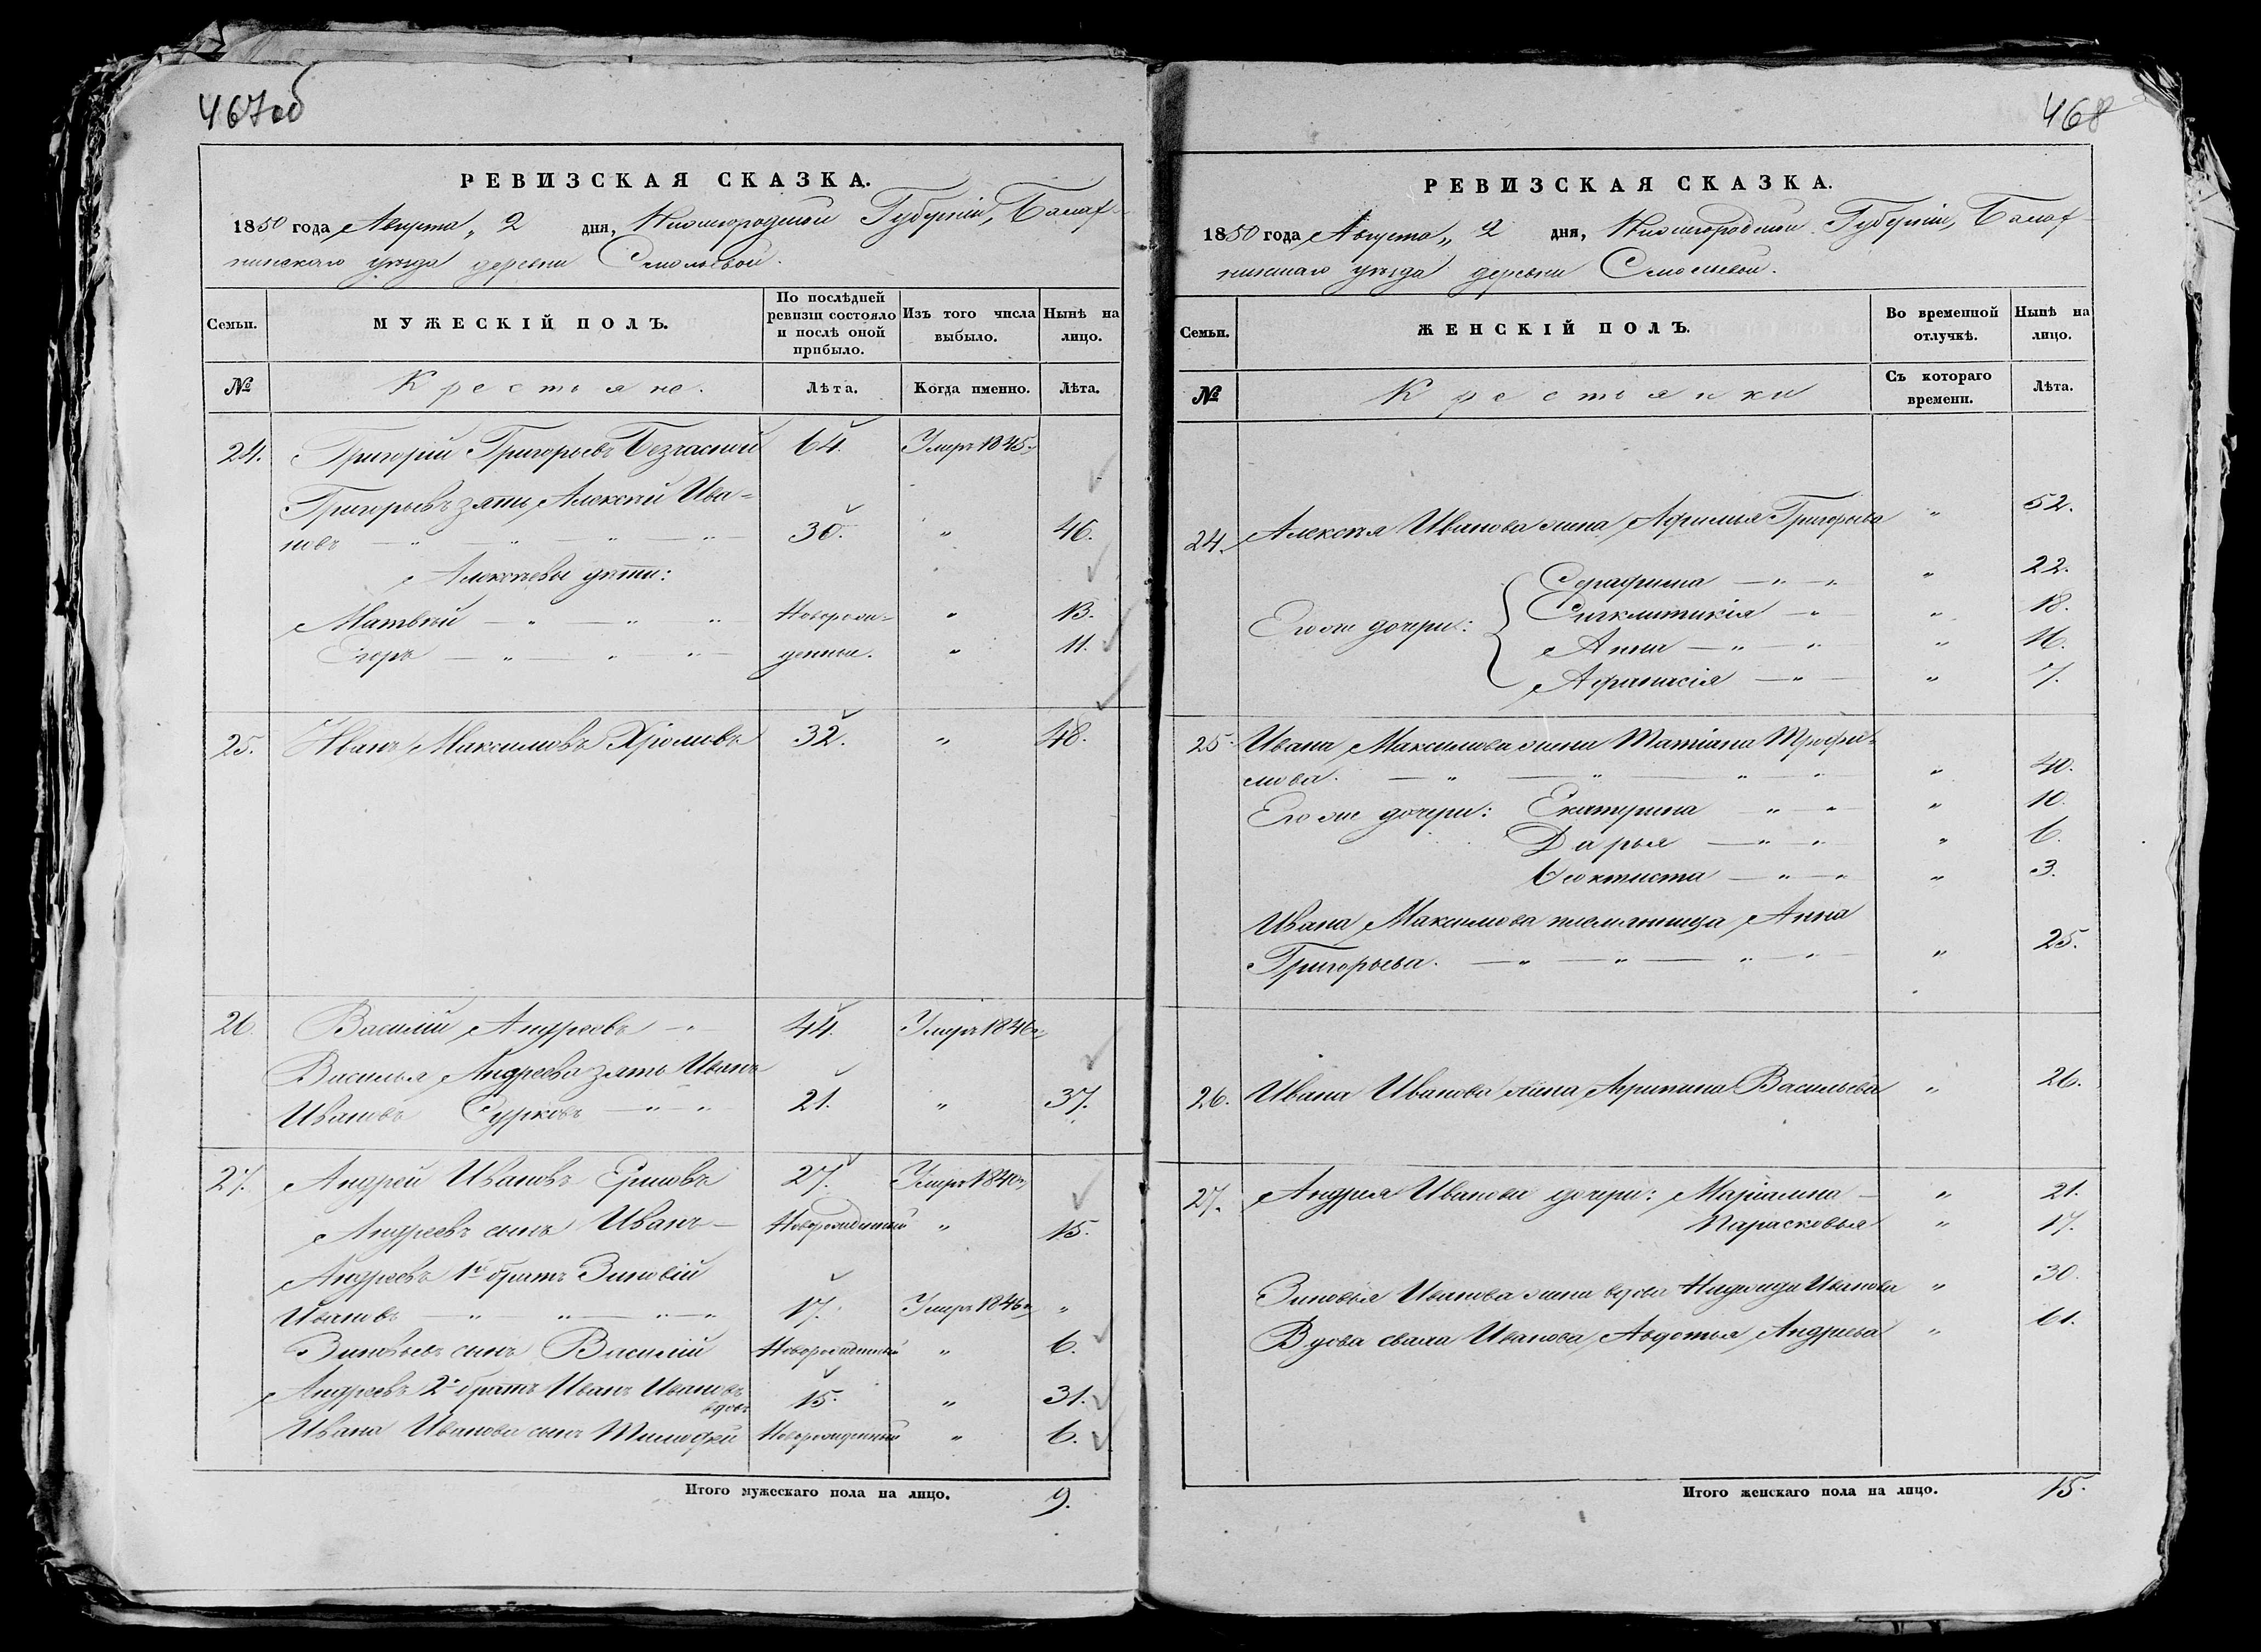 467об
РЕВИЗСКАЯ СКАЗКА.
1850 года Августа „ 2 дня, Нижегородской Губерніи, Балах-
нинскаго уѣзда деревни Смольевой.
Семьи. МУЖЕСКІЙ ПОЛЪ. По послѣдней ревизіи состояло и послѣ оной прибыло. Изъ того числа выбыло. Нынѣ на лицо.
№ Крестьяне. Лѣта. Когда именно. Лѣта.
24. Григорій Григорьевъ Безчасной 64. Умеръ 1845.
Григорьевъ зять Алексѣй Ива-
новъ — „ — „ — „ — „ 30. „ 46.
Алексѣевы дѣти:
Матвѣй — „ — „ „ Новорож- „ 13.
Егоръ — „ — „ „ — денные. „ 11.
25. Иванъ Максимовъ Хромовъ 32. „ 48.
26. Василій Андреевъ — „ 44. Умеръ 1846г.
Василья Андреева зять Иванъ
Ивановъ Сурковъ — „ — „ 21. „ 37.
27. Андрей Ивановъ Ершовъ 27. Умеръ 1840г.
Андреевъ сынъ Иванъ — Новорожденный „ 15.
Андреевъ 1й братъ Зиновій
Ивановъ — „ — „ — „ — „ 17. Умеръ 1846г. „
Зиновьевъ сынъ Василій Новорожденный „ 6.
Андреевъ 2й братъ Иванъ Ивановъ 15. „ 31.
вдовъ
Ивана Иванова сынъ Тимофей Новорожденный „ 6.
Итого мужескаго пола на лицо. 9.
468
РЕВИЗСКАЯ СКАЗКА.
1850 года Августа „ 2 дня, Нижегородской Губерніи, Балах-
нинскаго уѣзда деревни Смольевой.
Семьи. ЖЕНСКІЙ ПОЛЪ. Во временной отлучкѣ. Нынѣ на лицо.
№ Крестьянки Съ котораго времени. Лѣта.
24. Алексѣя Иванова жена Афимья Григорьева „ 52.
Серафима — „ — „ „ 22.
Его же дочери: Сигклитикія — „ „ 18.
Анна — „ — „ „ 16.
Афанасія — „ — „ 7.
25. Ивана Максимова жена Татіана Трофи-
мова. — „ — „ — „ — „ „ 40.
Его же дочери: Екатерина „ — „ „ 10.
Дарья — „ — „ „ 6.
Ѳеоктиста — „ — „ „ 3.
Ивана Максимова племянница Анна
Григорьева. — „ — „ — „ — „ „ 25.
26. Ивана Иванова жена Агрипина Васильева „ 26.
27. Андрея Иванова дочери: Маріамна — „ 21.
Парасковья „ 17.
Зиновья Иванова жена вдова Надежда Иванова „ 30.
Вдова Иванова Авдотья Андреева „ 61.
Итого женскаго пола на лицо. 15.